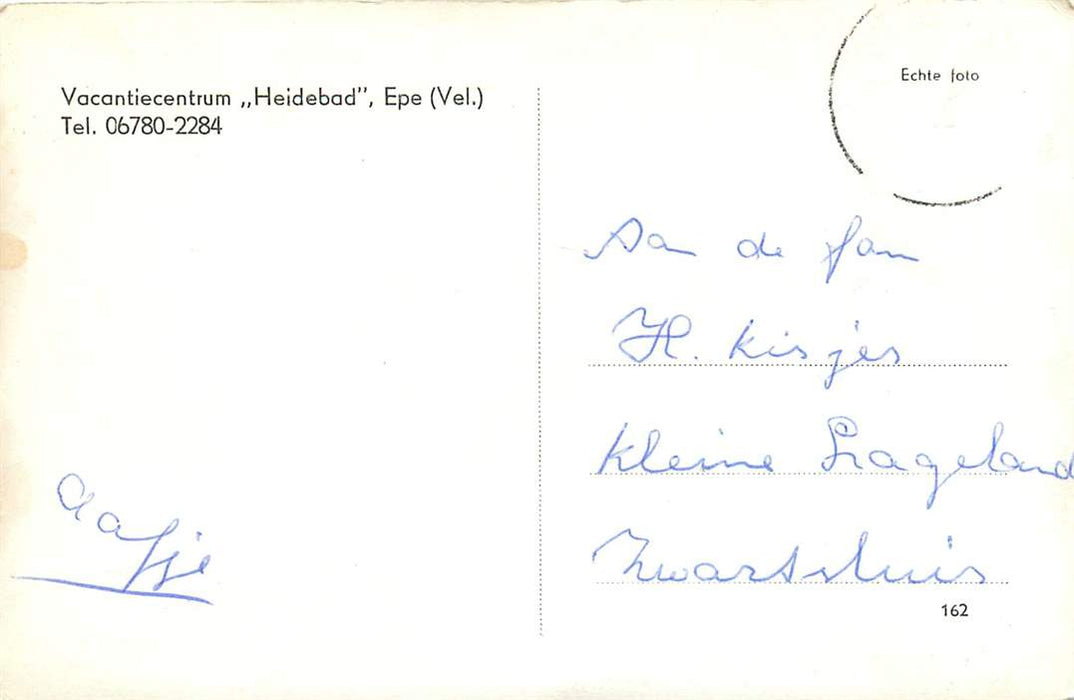 Vacantiecentrum „Heidebad”, Epe (Vel.)
Tel. 06780-2284
Echte foto
Aan de fam
H. Kisjes
Kleine Lageland
Zwartsluis
162
Aafje